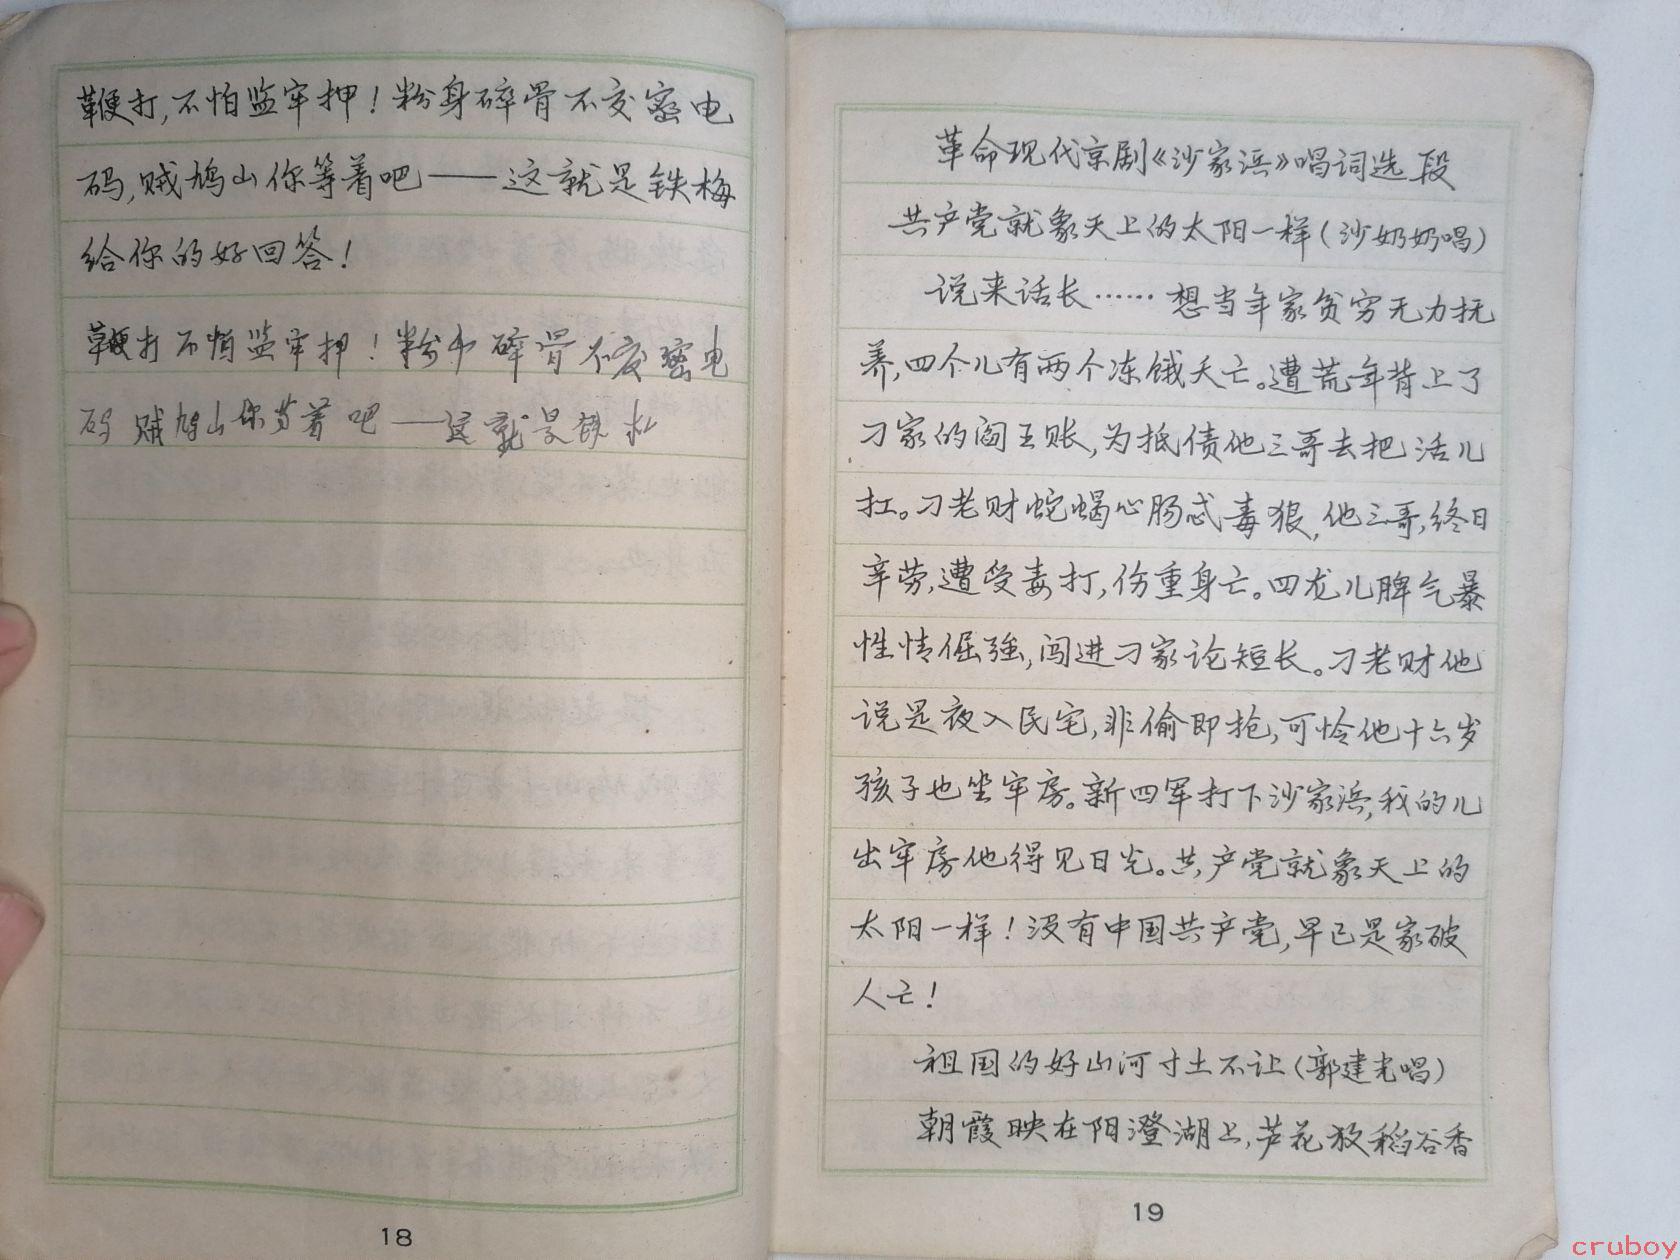 鞭打,不怕监牢押!粉身碎骨不交密电
码,贼鸠山你等着吧——这就是铁梅
给你的好回答!
鞭打不怕监牢押!粉身碎骨不交密电
码 贼鸠山你等着吧——这就是铁
18
革命现代京剧《沙家浜》唱词选段
共产党就象天上的太阳一样(沙奶奶唱)
说来话长……想当年家贫穷无力抚
养,四个儿有两个冻饿夭亡。遭荒年背上了
刁家的阎王账,为抵债他三哥去把活儿
扛。刁老财蛇蝎心肠忒毒狠,他三哥,终日
辛劳,遭受毒打,伤重身亡。四龙儿脾气暴
性情倔强,闯进刁家论短长。刁老财他
说是夜入民宅,非偷即抢,可怜他十六岁
孩子也坐牢房。新四军打下沙家浜,我的儿
出牢房他得见日光。共产党就象天上的
太阳一样!没有中国共产党,早已是家破
人亡!
祖国的好山河寸土不让(郭建光唱)
朝霞映在阳澄湖上,芦花放稻谷香
19
cruboy